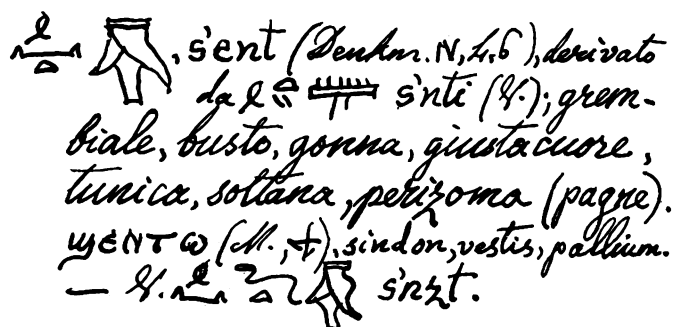 , s'ent (Denkm. IV, 4, 6), derivato
da s'nti (V.); grem-
biale, busto, gonna, giustacuore,
tunica, sottana, perizoma (pagne).
ϣⲉⲛⲧⲱ (M., †), sindon, vestis, pallium.
— V. s'nzt.